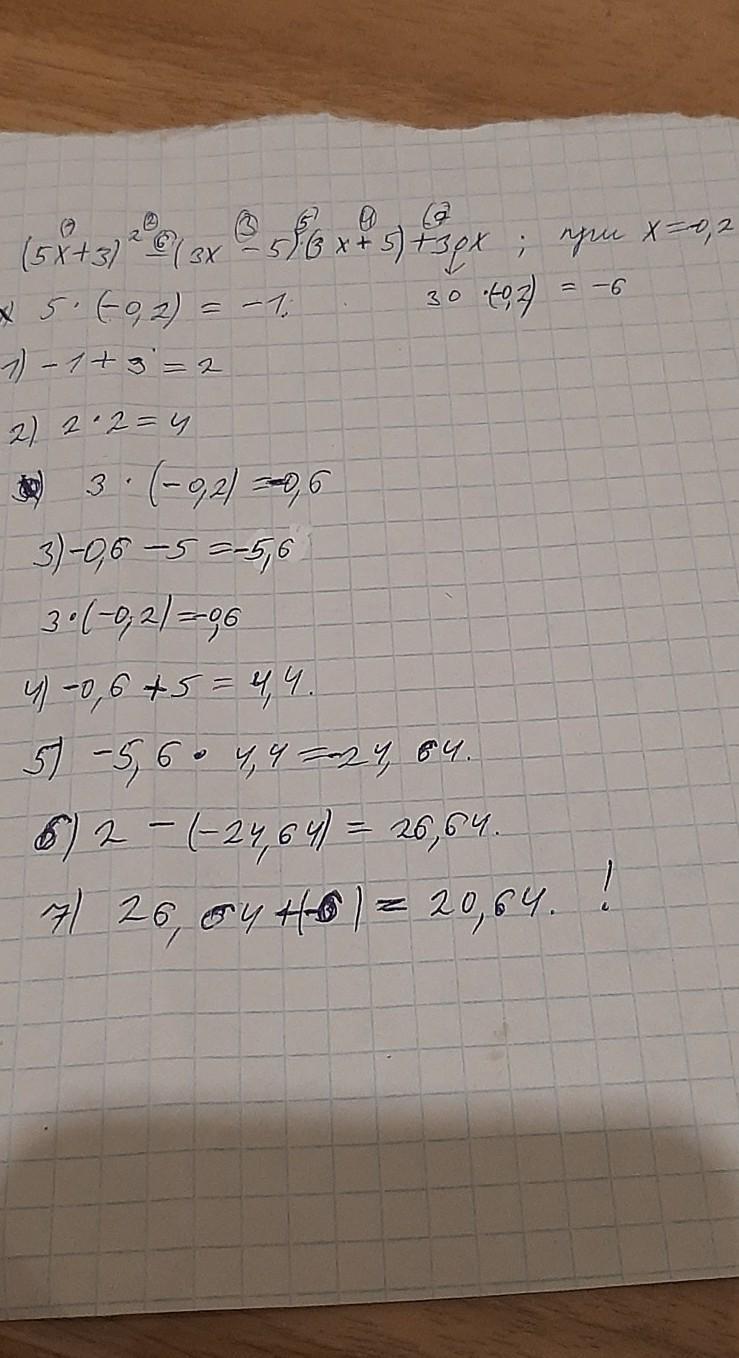 (5x+3)² - (3x - 5)·(3x + 5) + 30x ; при x=-0,2
x) 5 · (-0,2) = -1. 30 · (-0,2) = -6
1) -1 + 3 = 2
2) 2 · 2 = 4
3 · (-0,2) = -0,6
3) -0,6 - 5 = -5,6
3·(-0,2) = -0,6
4) -0,6 + 5 = 4,4.
5) -5,6 · 4,4 = -24,64.
6) 2 - (-24,64) = 26,64.
7) 26,64 + (-6) = 20,64. !